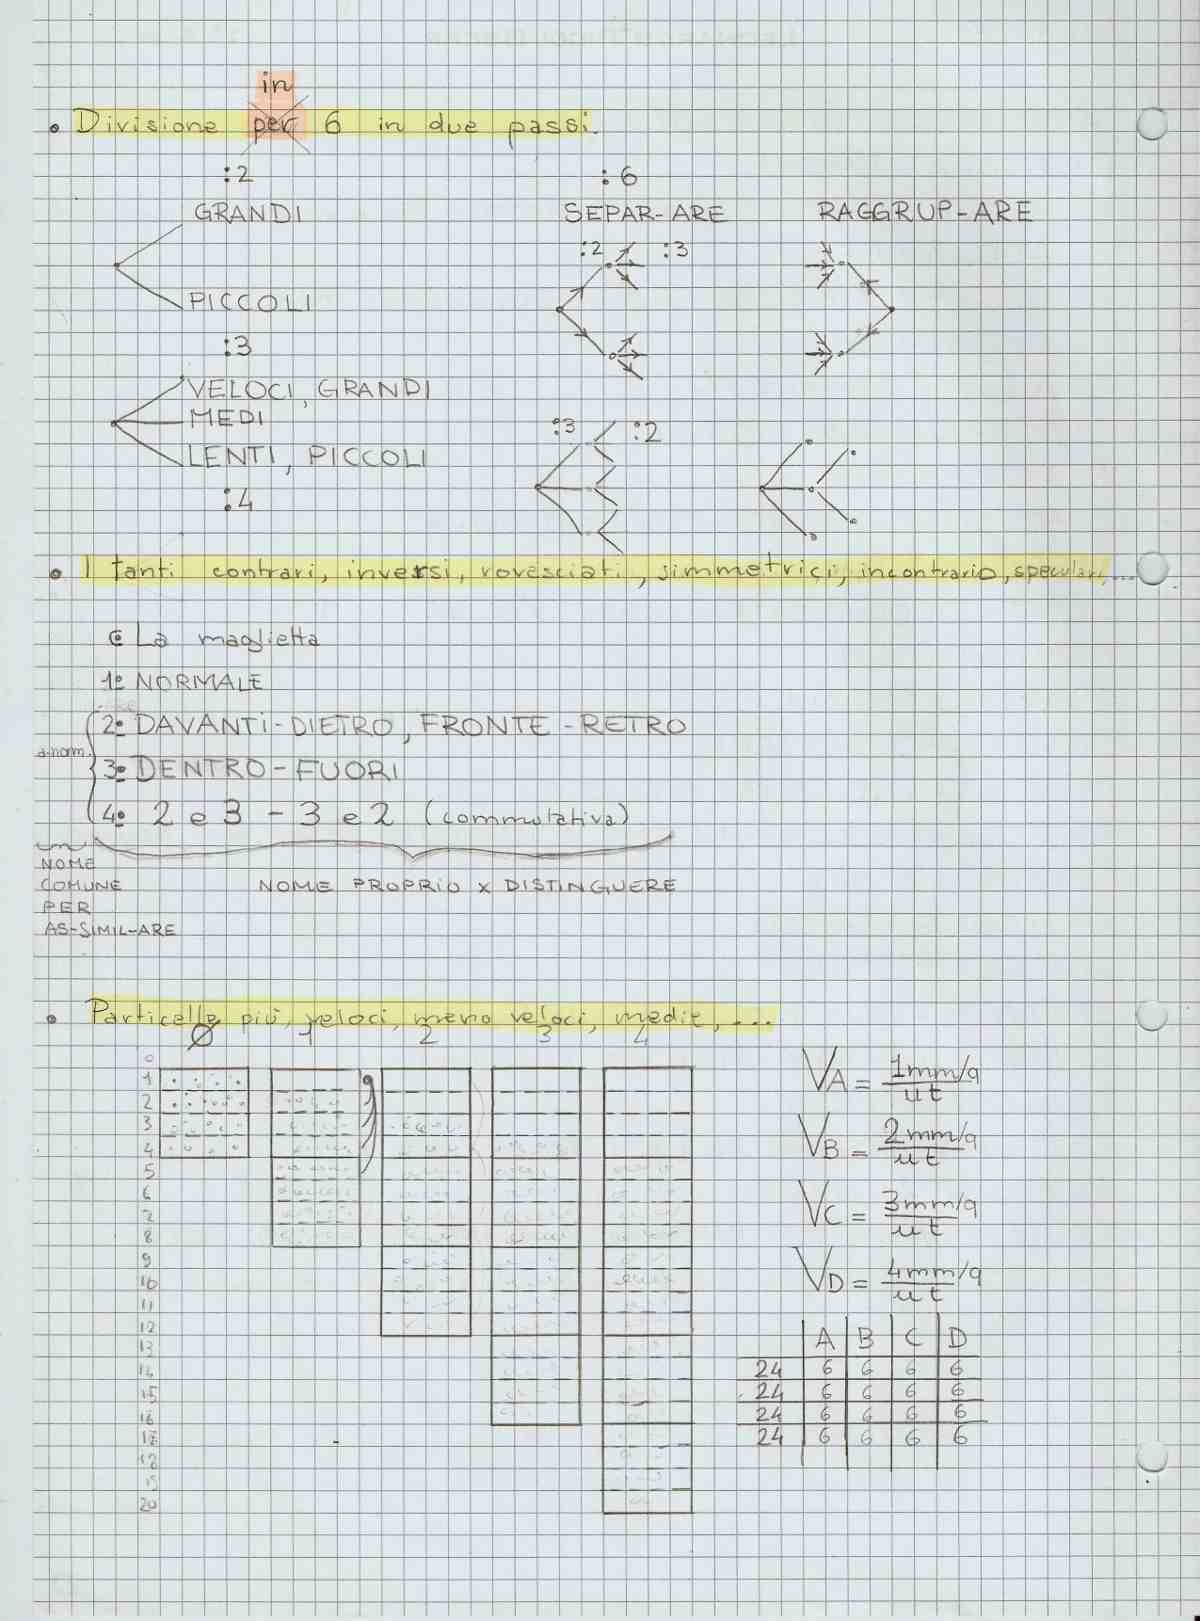 in
• Divisione per 6 in due passi.
:2 :6
GRANDI SEPAR-ARE RAGGRUP-ARE
:2 :3
PICCOLI
:3
VELOCI, GRANDI
MEDI :3 :2
LENTI, PICCOLI
:4
• I tanti contrari, inversi, rovesciati, simmetrici, incontrario, speculari, ...
La maglietta
1° NORMALE
2° DAVANTI-DIETRO, FRONTE-RETRO
a-norm.
3° DENTRO-FUORI
4° 2 e 3 - 3 e 2 (commutativa)
NOME
COMUNE NOME PROPRIO x DISTINGUERE
PER
AS-SIMIL-ARE
• Particelle più veloci, meno veloci, medie, ...
Ø 1 2 3 4
0
1
2
3
4
5
6
7
8
9
10
11
12
13
14
15
16
17
18
19
20
VA = 1mm/q
ut
VB = 2mm/q
ut
VC = 3mm/q
ut
VD = 4mm/q
ut
A B C D
24 6 6 6 6
24 6 6 6 6
24 6 6 6 6
24 6 6 6 6